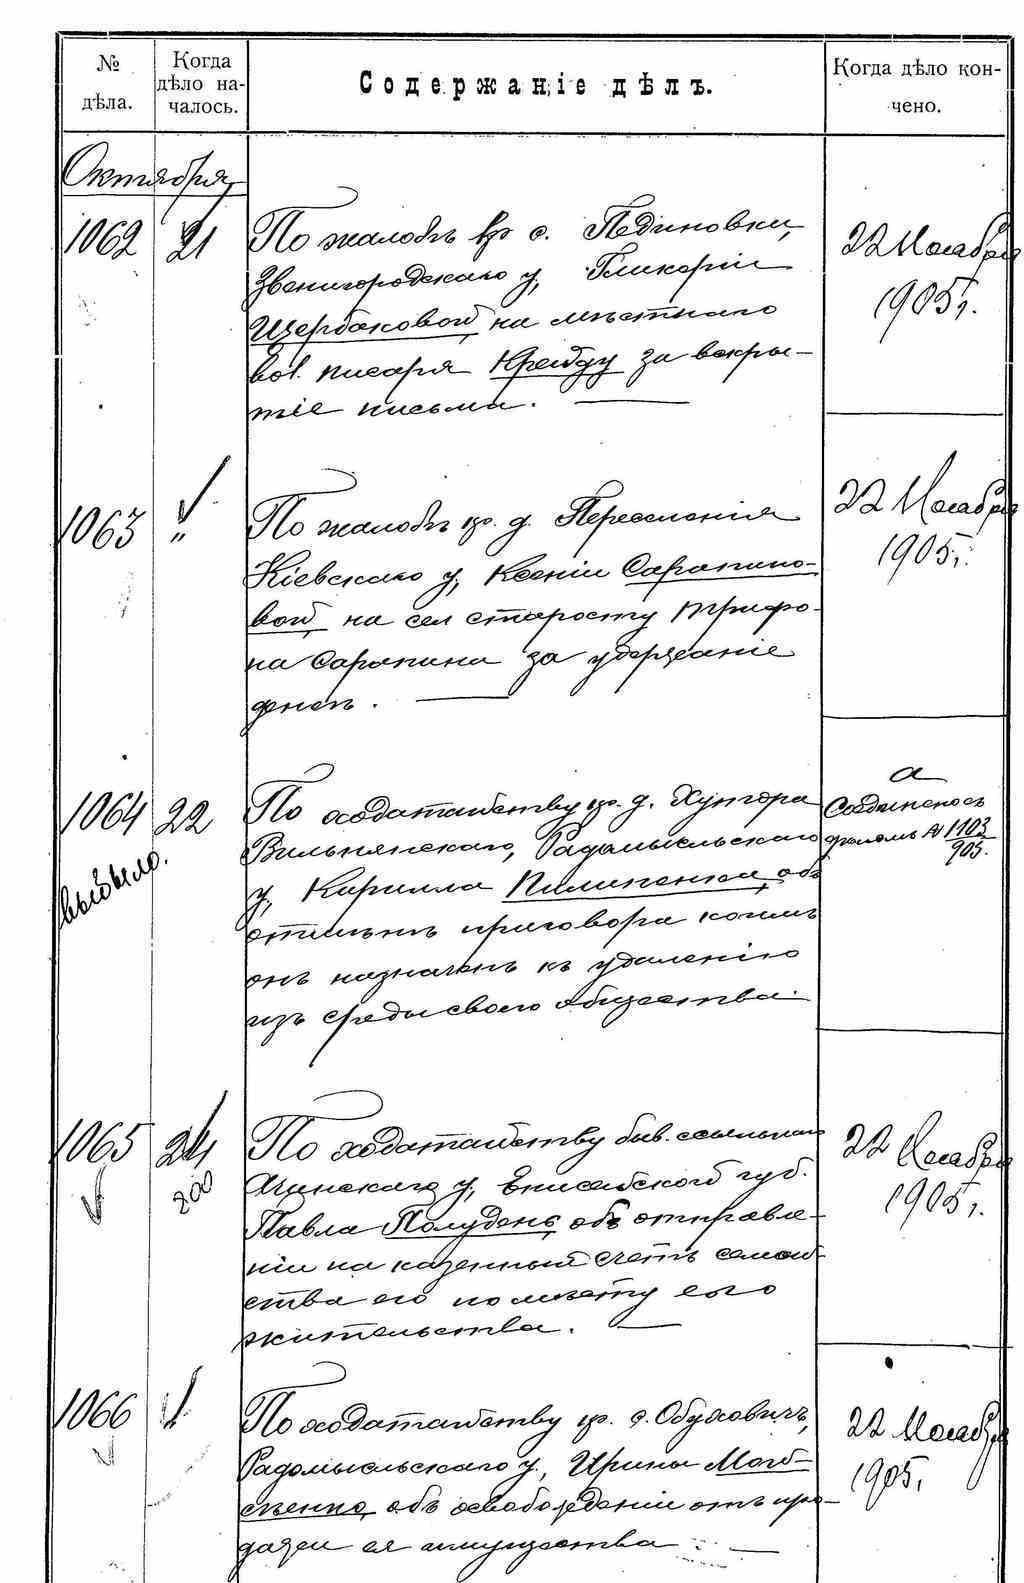 № дѣла.
Когда дѣло на-
чалось.
Содержаніе дѣлъ.
Когда дѣло кон-
чено.
Октября
1062 21 По жалобѣ кр с. Пединовки,
Звенигородскаго у, Гликеріи
Щербаковой на мѣстнаго
вол. писаря Крейду за вскры-
тіе письма.
22 Ноября
1905 г.
1063 " По жалобѣ кр. д. Переселенія
Кіевскаго у, Ксеніи Сарапино-
вой на сел старосту Трифо-
на Сарапина за удержаніе
денегъ.
22 Ноября
1905 г.
1064 22 По ходатайству кр. д. Хутора
Вильнянскаго, Радомысльскаго
у, Кирилла Пилипенка объ
отмѣнѣ приговора коимъ
онъ назначенъ къ удаленію
изъ среды своего общества.
выбыло.
а
Соединено съ
дѣломъ № 1103/905.
1065 24 По ходатайству быв. ссыльнаго
Ачинскаго у, Енисейской губ.
Павла Полудень, объ отправле-
ніи на казенный счетъ семей-
ства его по мѣсту его
жительства.
200
22 Ноября
1905 г.
1066 " По ходатайству кр. с. Обуховичъ,
Радомысльскаго у, Ирины Мой-
сѣенко, объ освобожденіи отъ про-
дажи ея имущества
22 Ноября
1905 г.